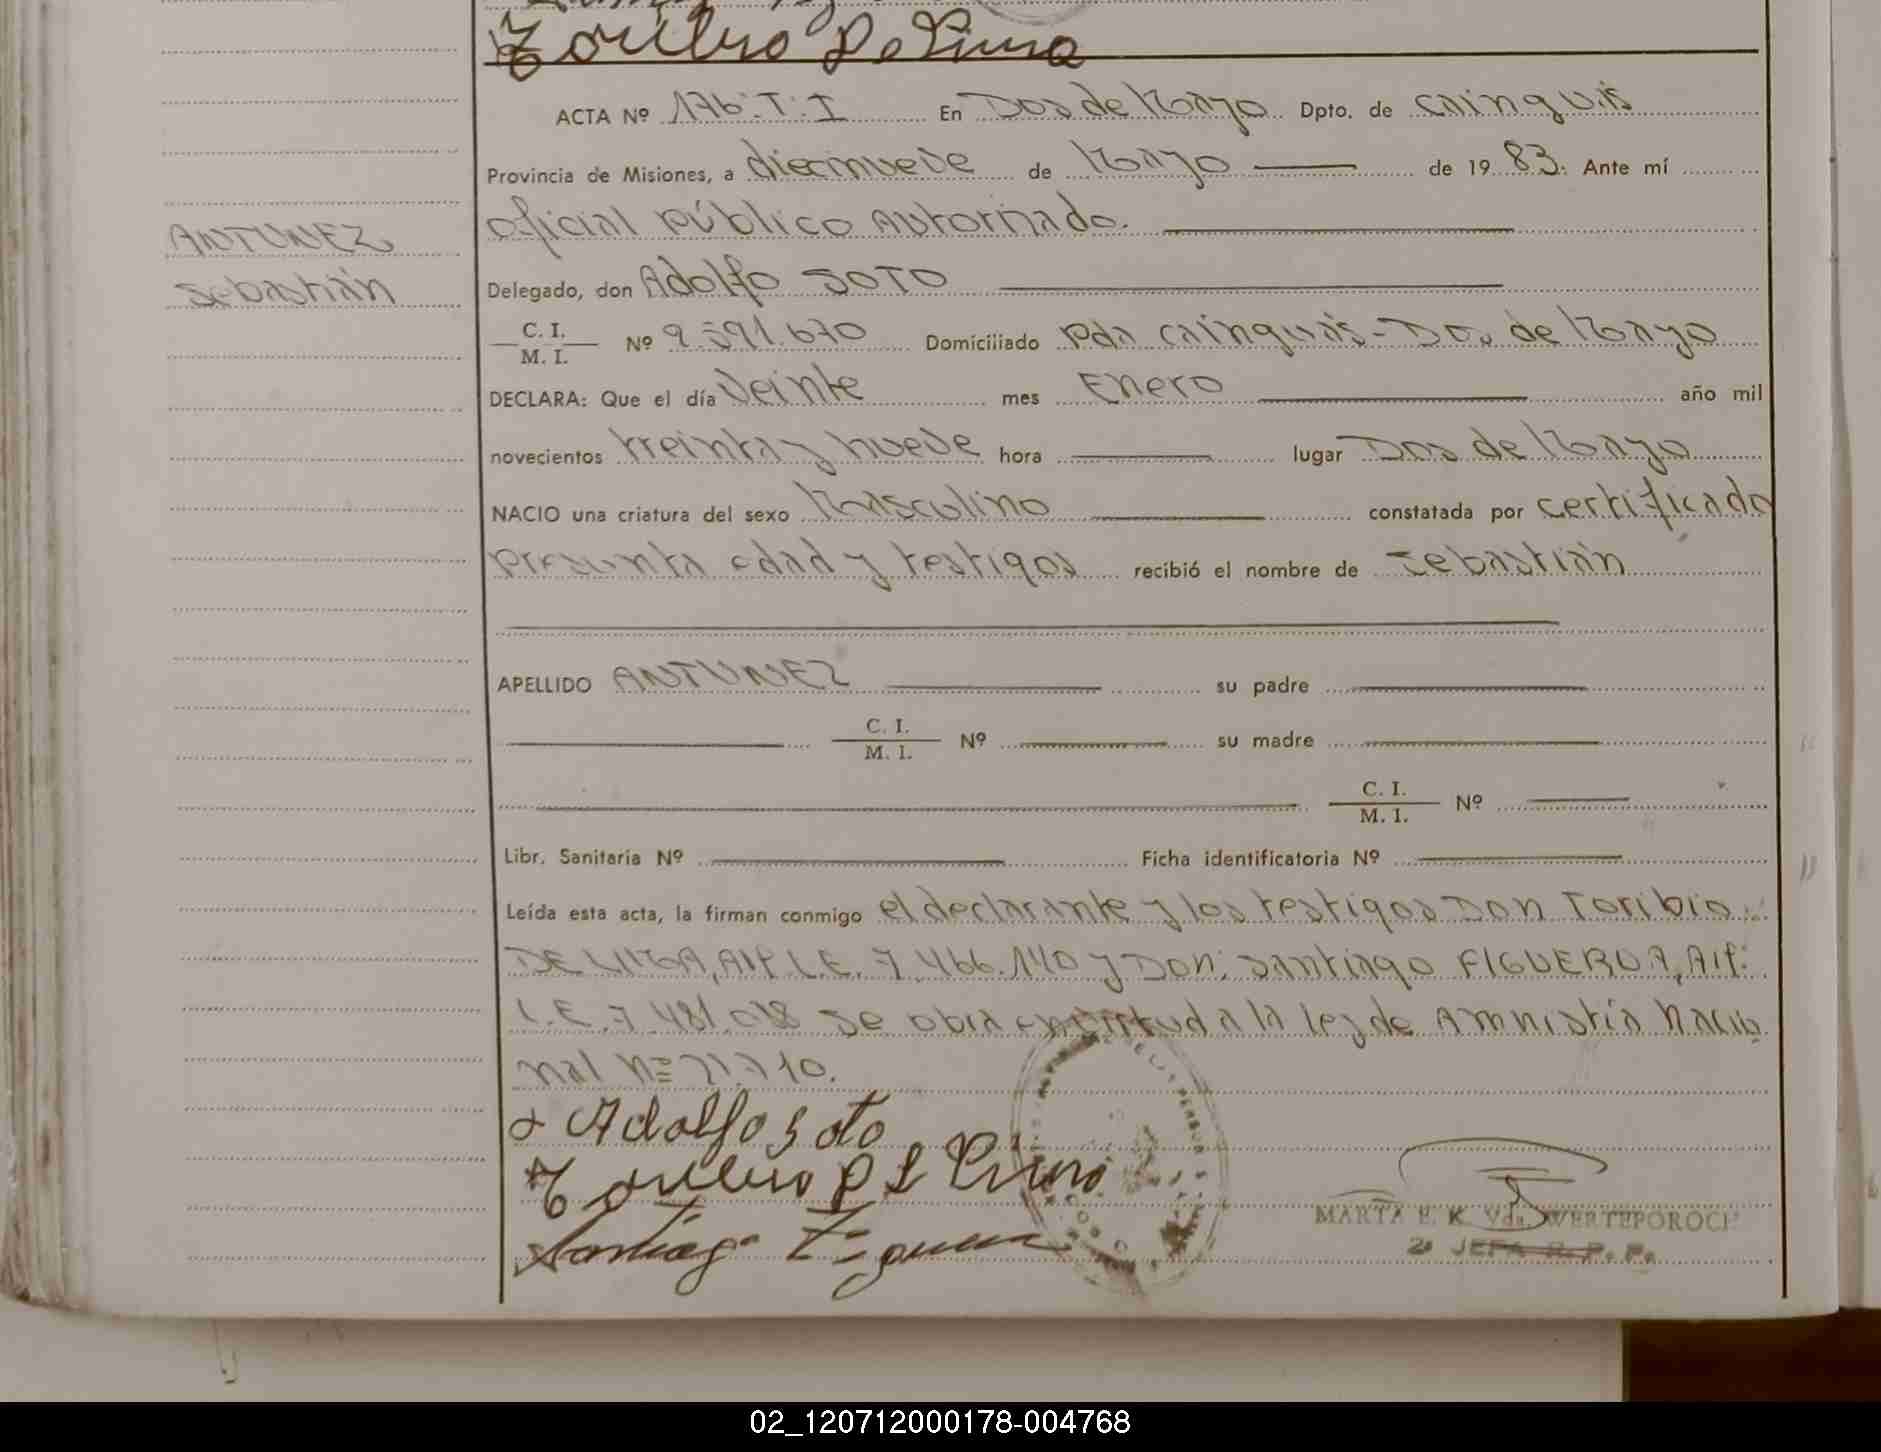 Toribio De Lima
ACTA Nº 176. T. I En Dos de Mayo Dpto. de Cainguás
Provincia de Misiones, a diecinueve de Mayo de 1983. Ante mí
oficial público Autorizado.
ANTUNEZ
Sebastián
Delegado, don Adolfo SOTO
C. I.
M. I. Nº 2.591.670 Domiciliado Pda Cainguás - Dos de Mayo
DECLARA: Que el día veinte mes Enero año mil
novecientos treinta y nueve hora lugar Dos de Mayo
NACIO una criatura del sexo Masculino constatada por certificado
presunta edad y testigos recibió el nombre de Sebastián
APELLIDO ANTUNEZ su padre
C. I.
M. I. Nº su madre
C. I.
M. I. Nº
Libr. Sanitaria Nº Ficha identificatoria Nº
Leída esta acta, la firman conmigo el declarante y los testigos Don Toribio
DE LIMA, Alf. L.E. 7.466.140 y Don: Santiago FIGUEROA, Alf:
L.E. 7.481.018 se obra en virtud a la ley de Amnistía Nacio
nal Nº 21.710.
Adolfo Soto
Toribio De Lima
Santiago Figueroa
MARTA E. K. Vda. WERTEPOROCH
2º JEFA R. P. P.
02_120712000178-004768